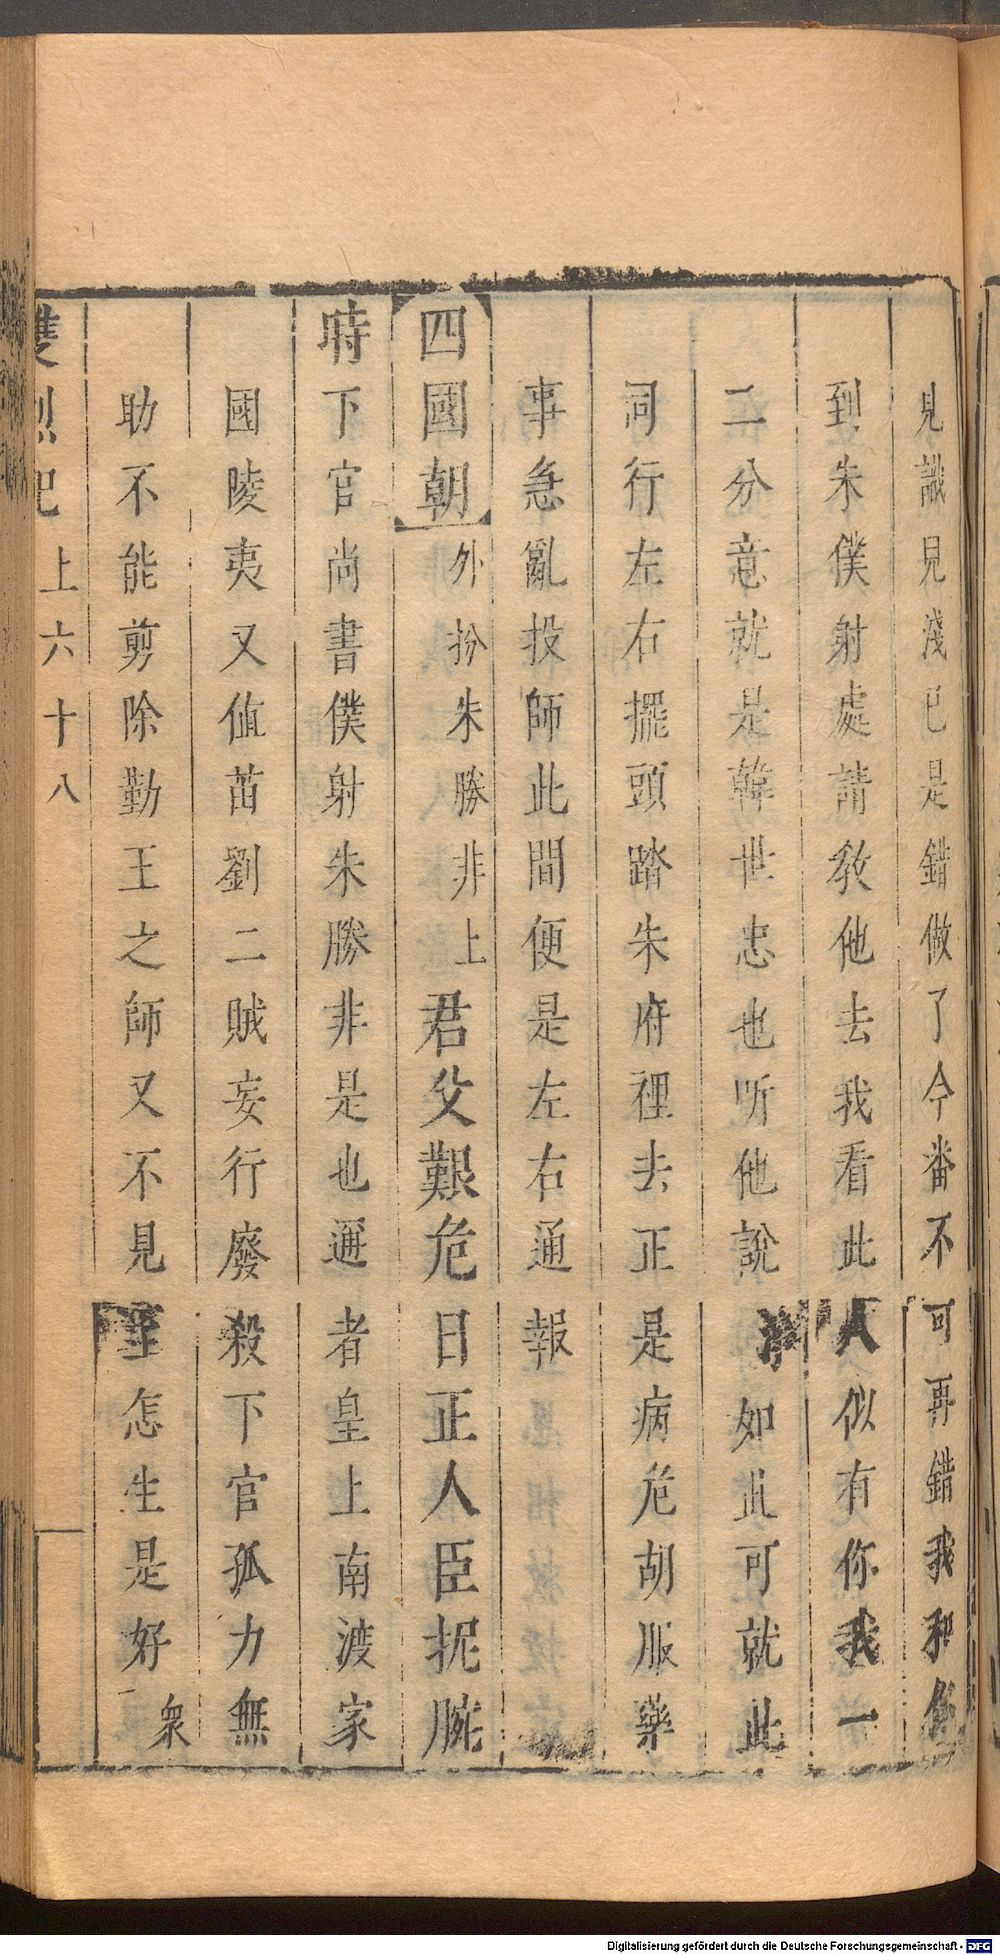 見識見淺已是錯做了今番不可再錯我和你
到朱僕射處請教他去我看此人似有你我一
二分意就是韓世忠也听他說 如此可就此
同行左右擺頭踏朱府裡去正是病危胡服藥
事急亂投師此間便是左右通報
四國朝外扮朱勝非上君父艱危日正人臣扼腕
時下官尚書僕射朱勝非是也邇者皇上南渡家
國陵夷又值苗劉二賊妄行廢殺下官孤力無
助不能剪除勤王之師又不見至怎生是好衆
雙烈記 上 六十八
Digitalisierung gefördert durch die Deutsche Forschungsgemeinschaft - DFG